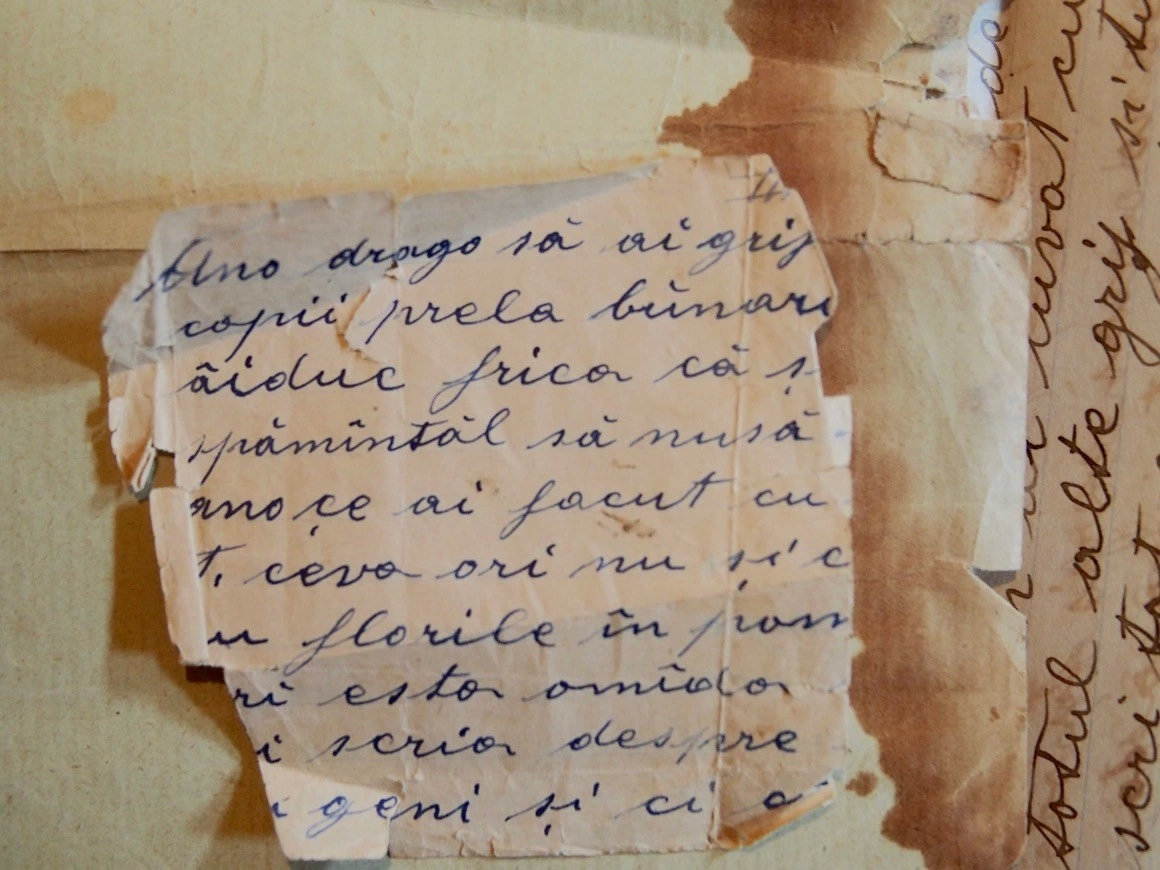 Ano drago să ai grij
copii prela bûnaru
âiduc frica că ș
spămîntăl să nusă
ano çe ai facut cu
t, ceva ori nu și c
u florile în pom
ri esta omîda
i scria despre
i geni și ci a
de
uvat cu
totul alte grij și tu
scri tot